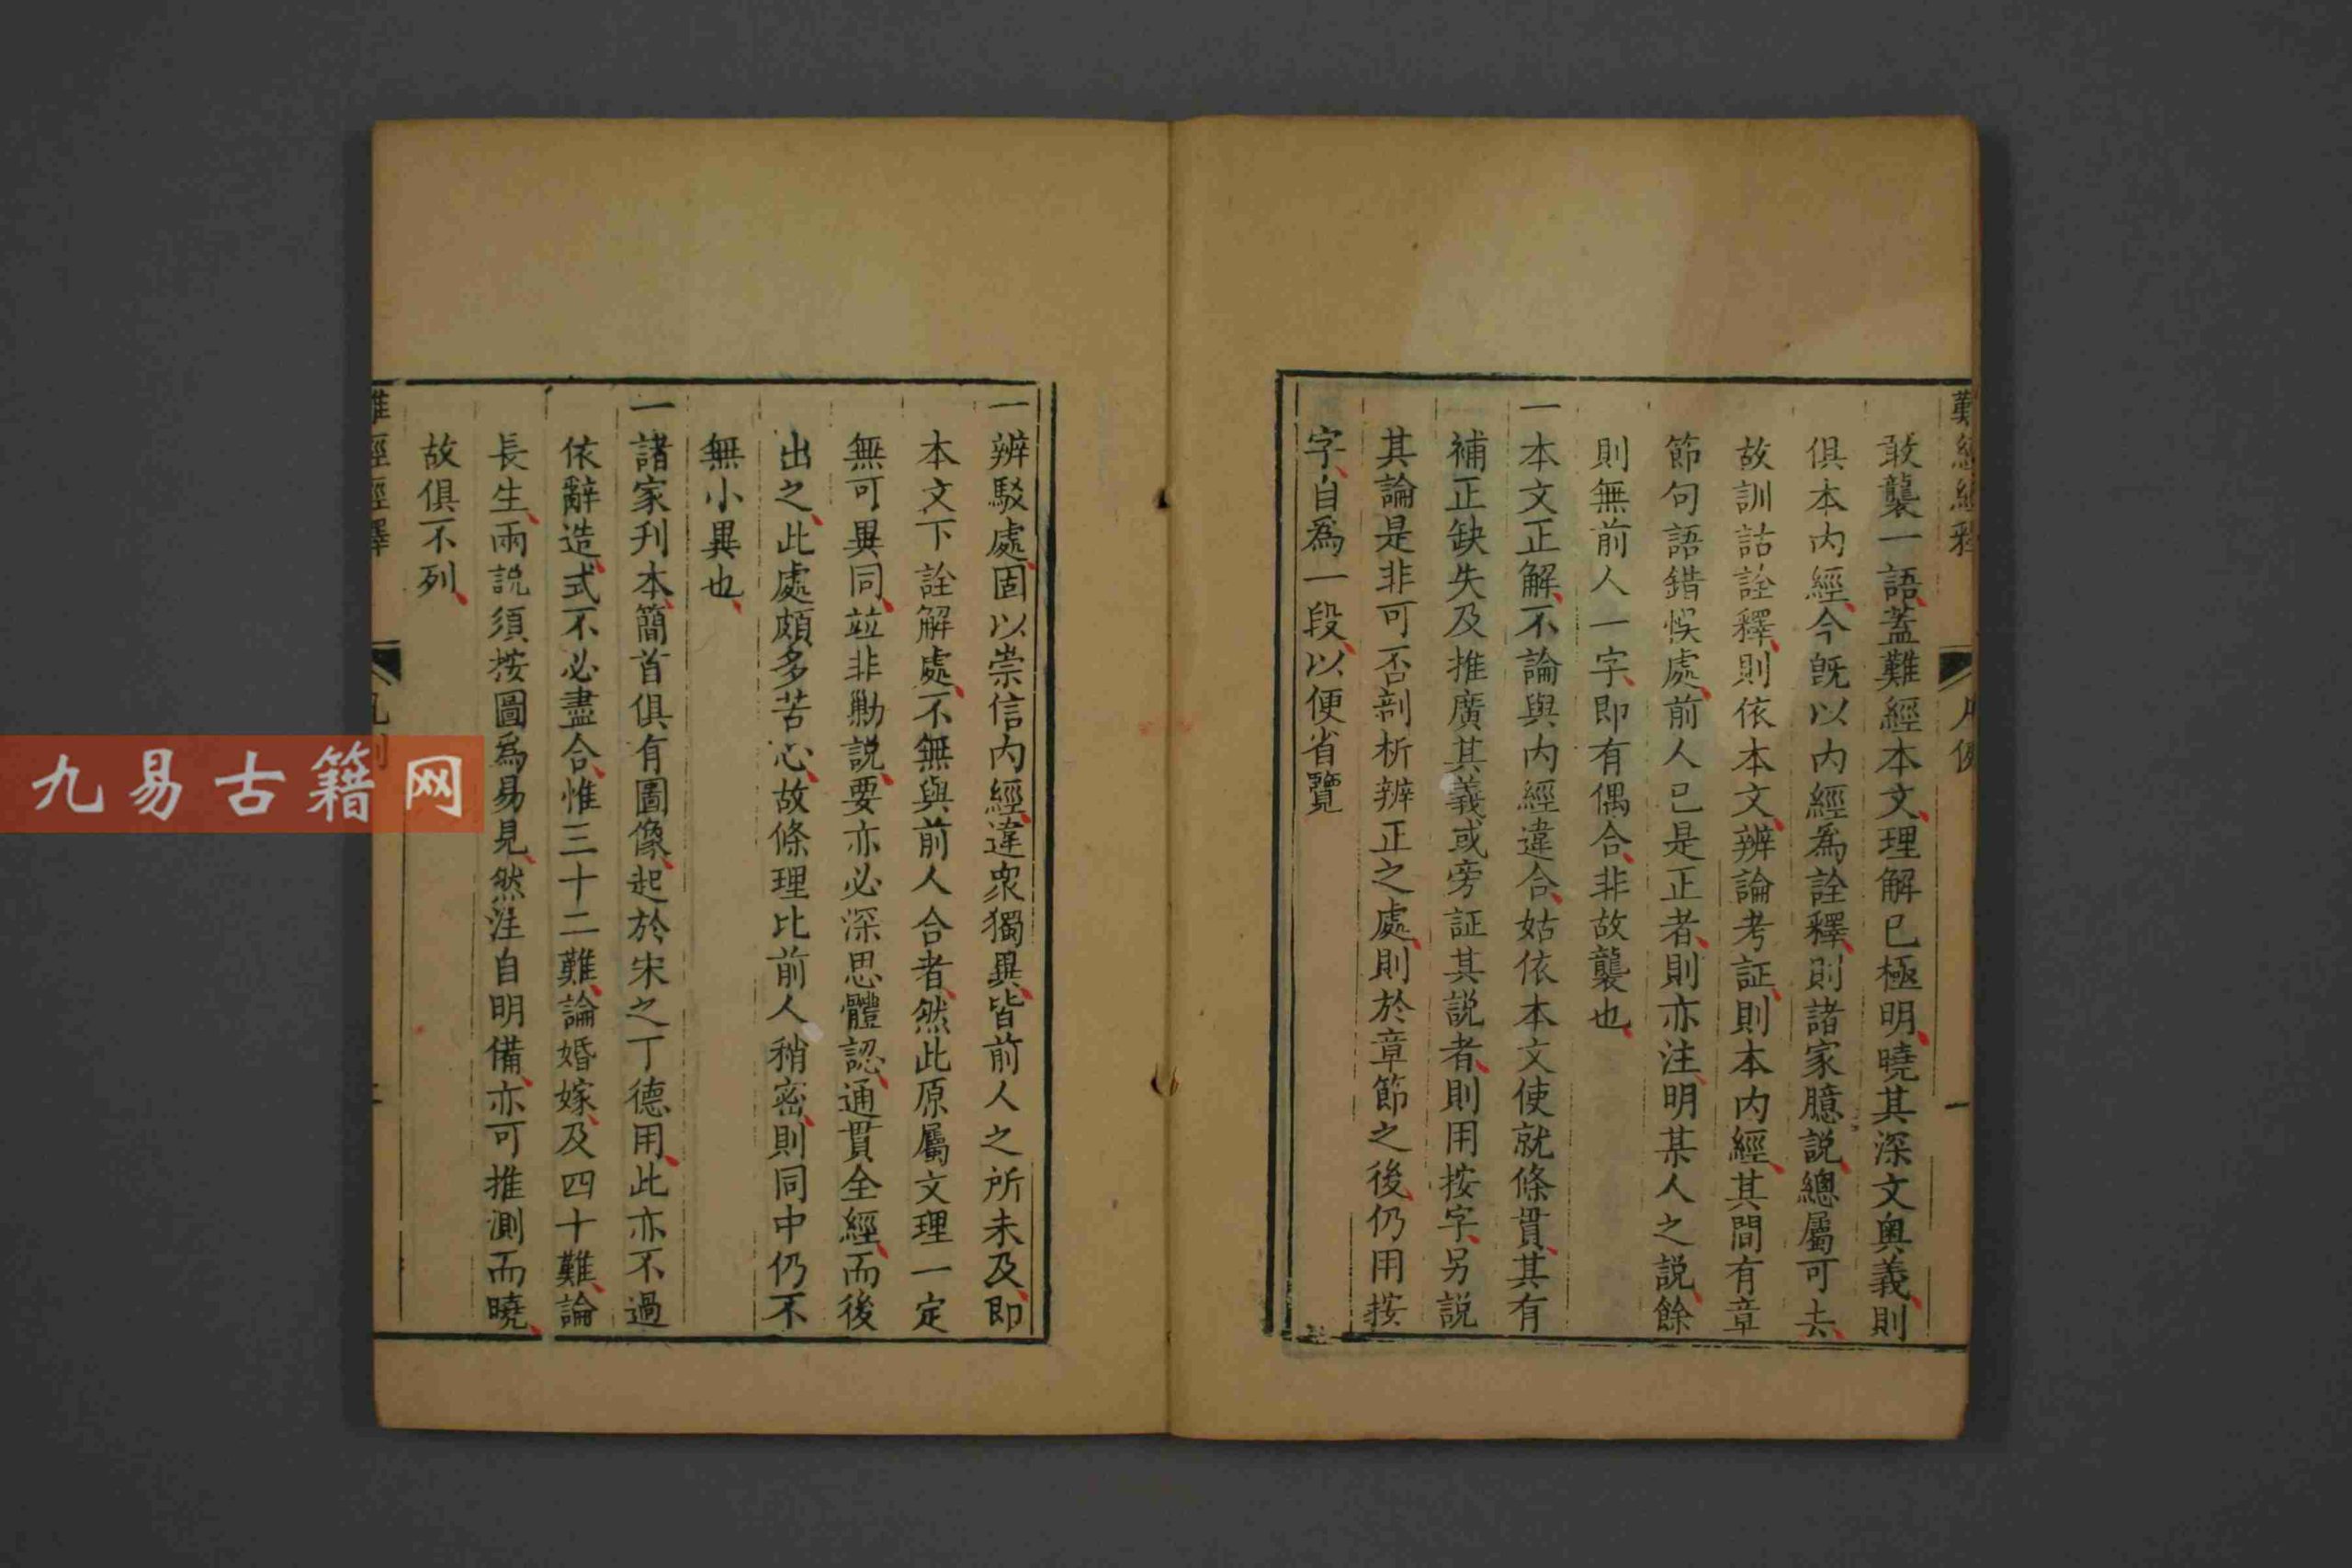 難經經釋
凡例
一
敢襲一語蓋難經本文理解已極明曉其深文奥義則
俱本内經今旣以内經爲詮釋則諸家臆説總屬可去
故訓詁詮釋則依本文辨論考証則本内經其間有章
節句語錯悞處前人已是正者則亦注明某人之説餘
則無前人一字即有偶合非故襲也
一本文正解不論與内經違合姑依本文使就條貫其有
補正缺失及推廣其義或旁証其説者則用按字另説
其論是非可否剖析辨正之處則於章節之後仍用按
字自爲一段以便省覽
一辨駁處固以崇信内經違衆獨異皆前人之所未及即
本文下詮解處不無與前人合者然此原屬文理一定
無可異同並非勦説要亦必深思體認通貫全經而後
出之此處頗多苦心故條理比前人稍密則同中仍不
無小異也
一諸家刋本簡首俱有圖像起於宋之丁德用此亦不過
依辭造式不必盡合惟三十二難論婚嫁及四十難論
長生兩説須按圖爲易見然注自明備亦可推測而曉
故俱不列
難經經釋
九易古籍网